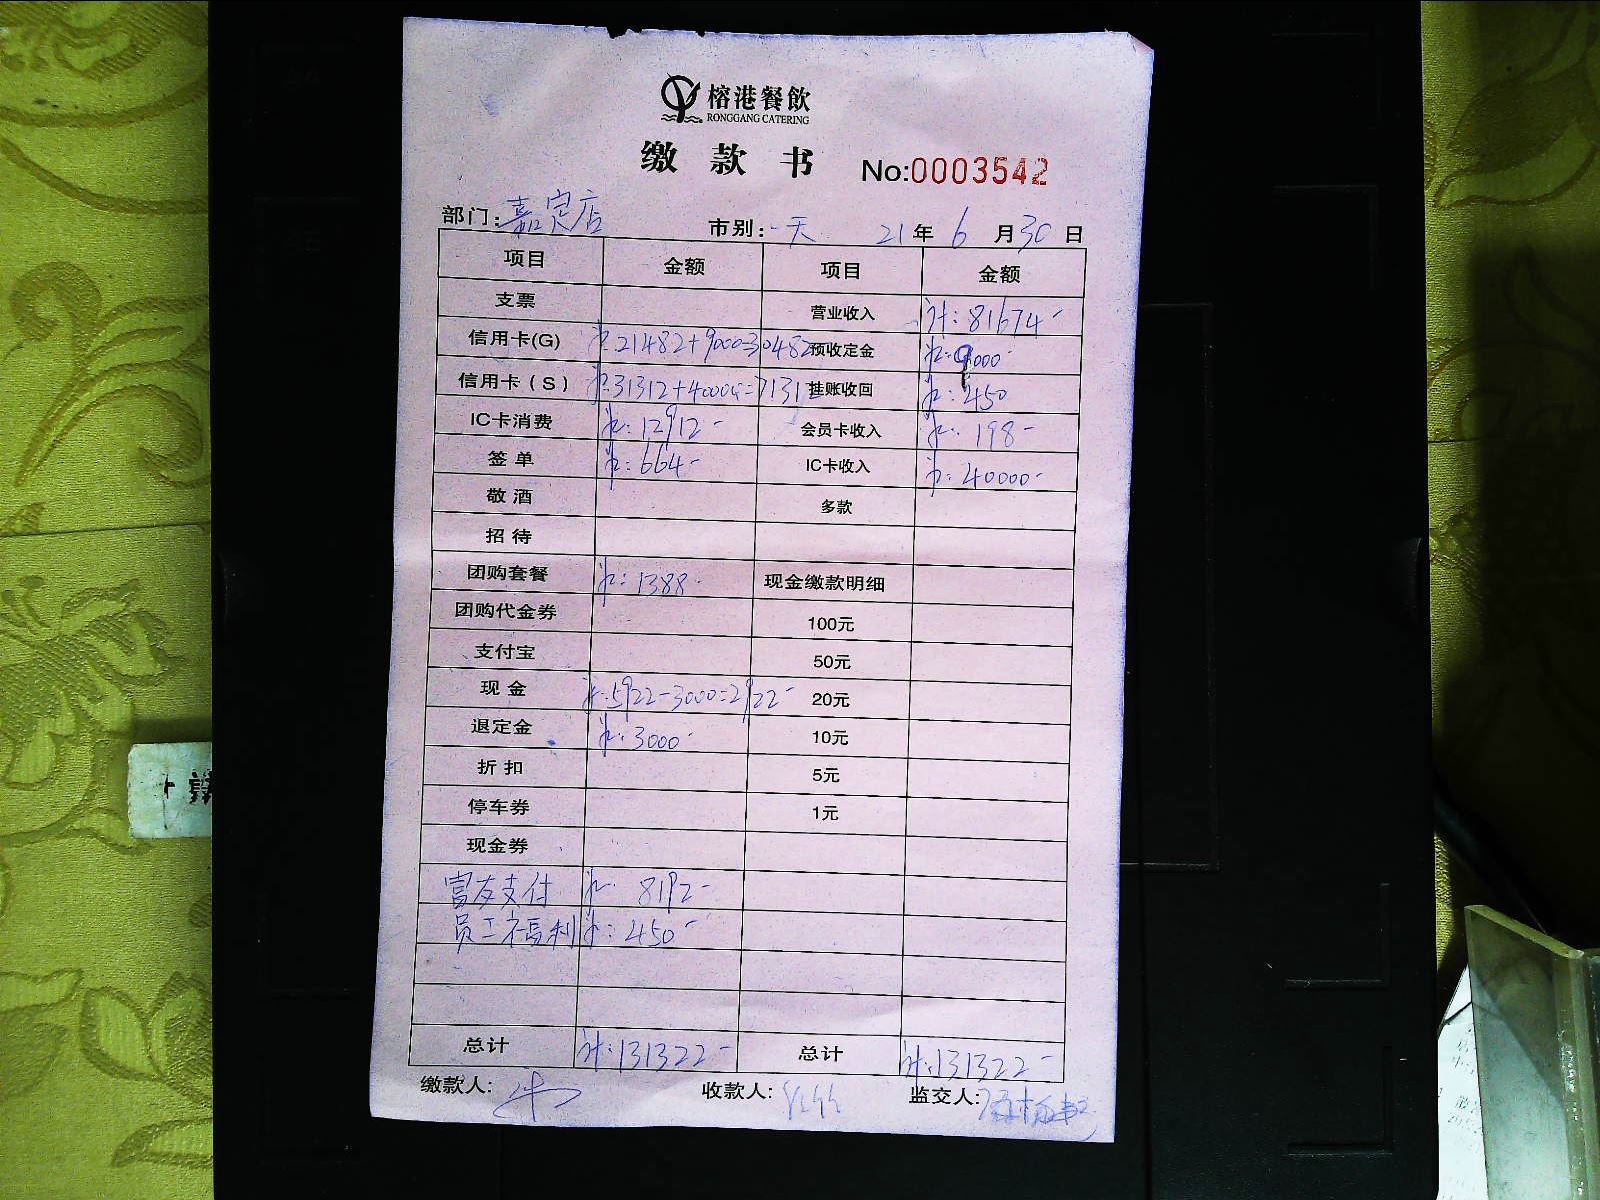 榕港餐飲
RONGGANG CATERING
缴款书 No:0003542
部门:嘉定店 市别:一天 21年6月30日
项目 金额 项目 金额
支票 营业收入 计:81674-
信用卡(G) 计:21482+9000=30482 预收定金 计:9000-
信用卡(S) 计:31312+40000=71312 挂账收回 计:450
IC卡消费 计:12912- 会员卡收入 计:198-
签单 计:664- IC卡收入 计:40000-
敬酒 多款
招待
团购套餐 计:1388- 现金缴款明细
团购代金券 100元
支付宝 50元
现金 计:5922-3000=2922- 20元
退定金 计:3000- 10元
折扣 5元
停车券 1元
现金券
富友支付 计:8192-
员工福利 计:450-
总计 计:131322- 总计 计:131322-
缴款人: 收款人: 监交人: